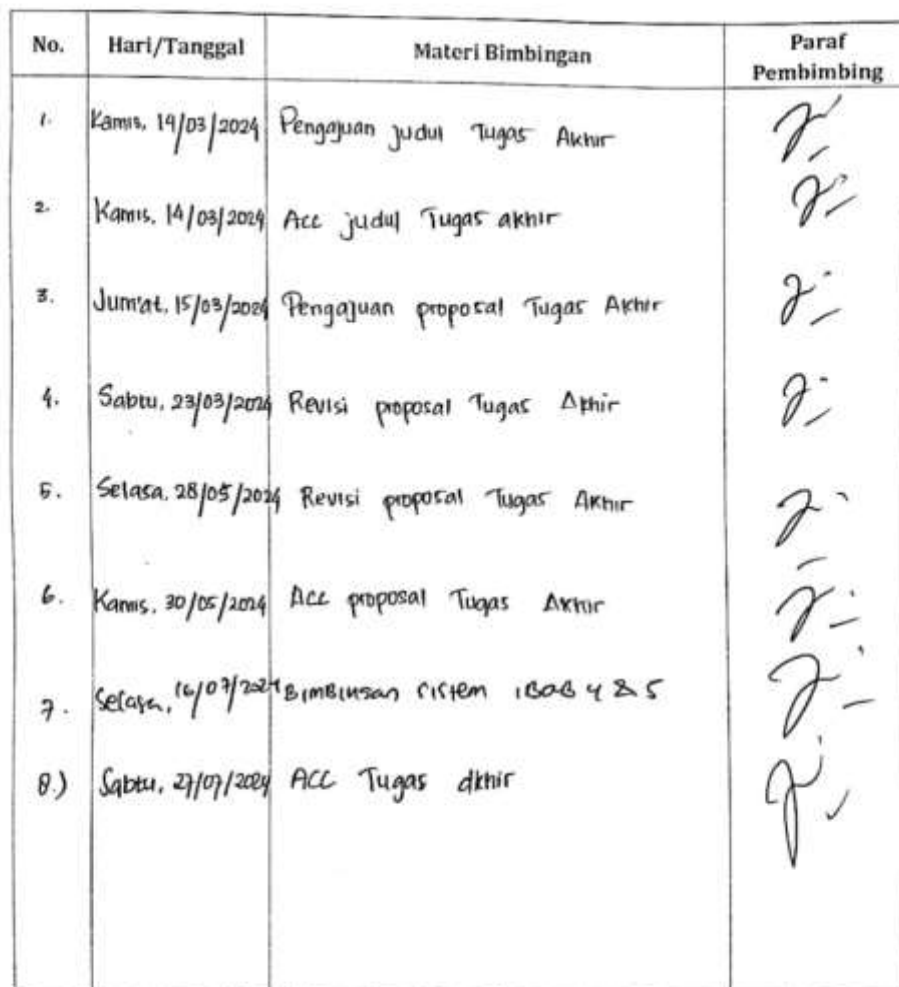 No. Hari/Tanggal Materi Bimbingan Paraf Pembimbing
1. Kamis, 14/03/2024 Pengajuan judul Tugas Akhir
2. Kamis, 14/03/2024 Acc judul Tugas akhir
3. Jum'at, 15/03/2024 Pengajuan proposal Tugas Akhir
4. Sabtu, 23/03/2024 Revisi proposal Tugas Akhir
5. Selasa, 28/05/2024 Revisi proposal Tugas Akhir
6. Kamis, 30/05/2024 Acc proposal Tugas Akhir
7. Selasa, 16/07/2024 Bimbingan sistem, BAB 4 & 5
8.) Sabtu, 27/07/2024 ACC Tugas akhir